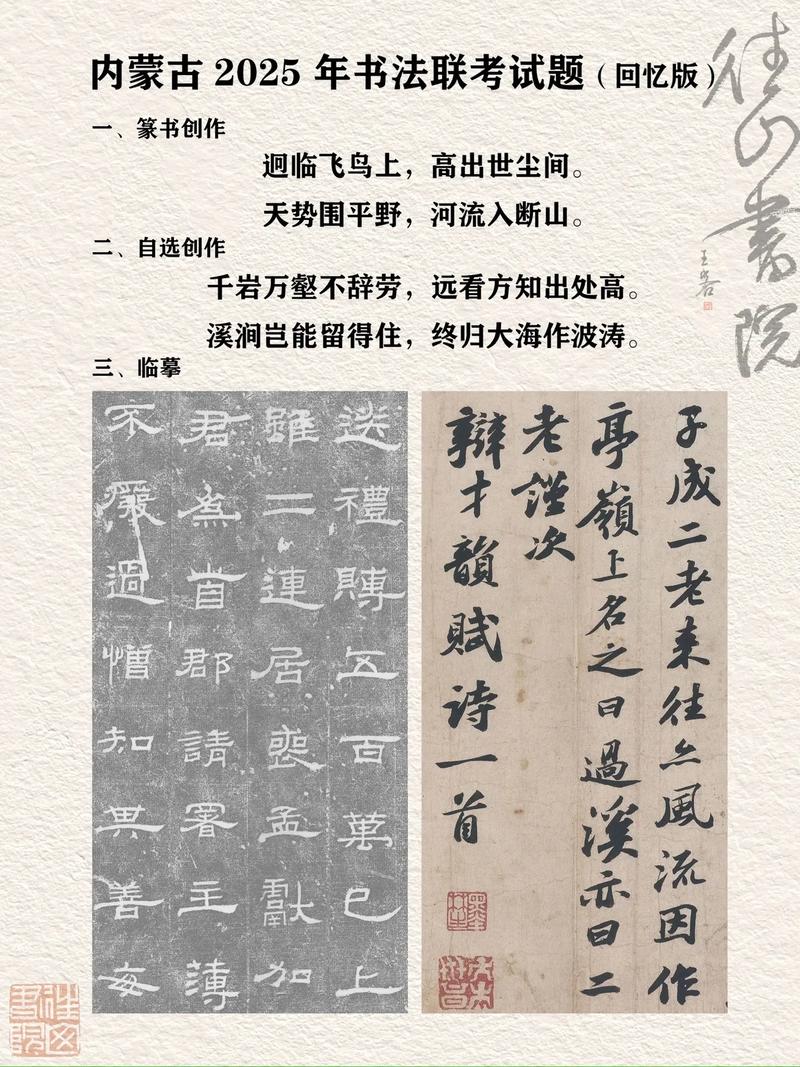 内蒙古 2025 年书法联考试题（回忆版）
一、篆书创作
迥临飞鸟上，高出世尘间。
天势围平野，河流入断山。
二、自选创作
千岩万壑不辞劳，远看方知出处高。
溪涧岂能留得住，终归大海作波涛。
三、临摹
送禮賻五百萬已上
雖二連居喪孟獻加
君首郡請署主薄
不嚴過憎知其善每
子成二老来往亦風流因作
亭嶺上名之曰過溪亦曰二
老謹次
辯才韻賦詩一首
往山書院